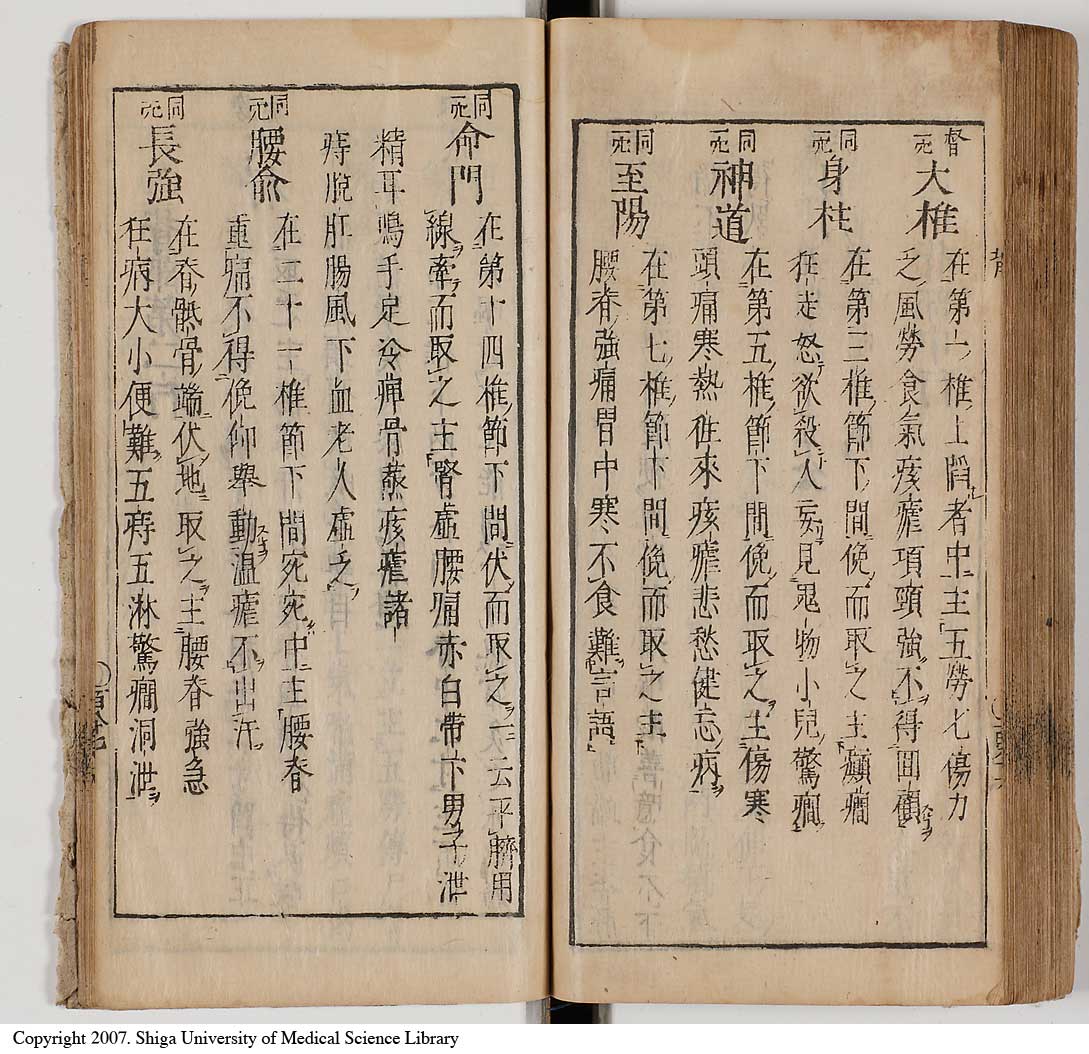 督 大椎
在第一椎上陷者中主五勞七傷力
乏風勞食氣痎瘧項頸強不得回顧
同 身柱
在第三椎節下間俛而取之主癲癇
狂走怒欲殺人妄見鬼物小兒驚癇
同 神道
在第五椎節下間俛而取之主傷寒
頭痛寒熱往來痎瘧悲愁健忘病
同 至陽
在第七椎節下間俛而取之主
腰脊強痛胃中寒不食難言語
同 命門
在第十四椎節下間伏而取之一云平臍用
線牽而取之主腎虛腰痛赤白帶下男子泄
精耳鳴手足冷痺骨蒸痎瘧諸
痔脫肛腸風下血老人虛乏
同 腰俞
在二十一椎節下間宛宛中主腰脊
重痛不得俛仰舉動溫瘧不出汗
同 長強
在脊骶骨端伏地取之主腰脊強急
狂病大小便難五痔五淋驚癇洞泄
Copyright 2007. Shiga University of Medical Science Library